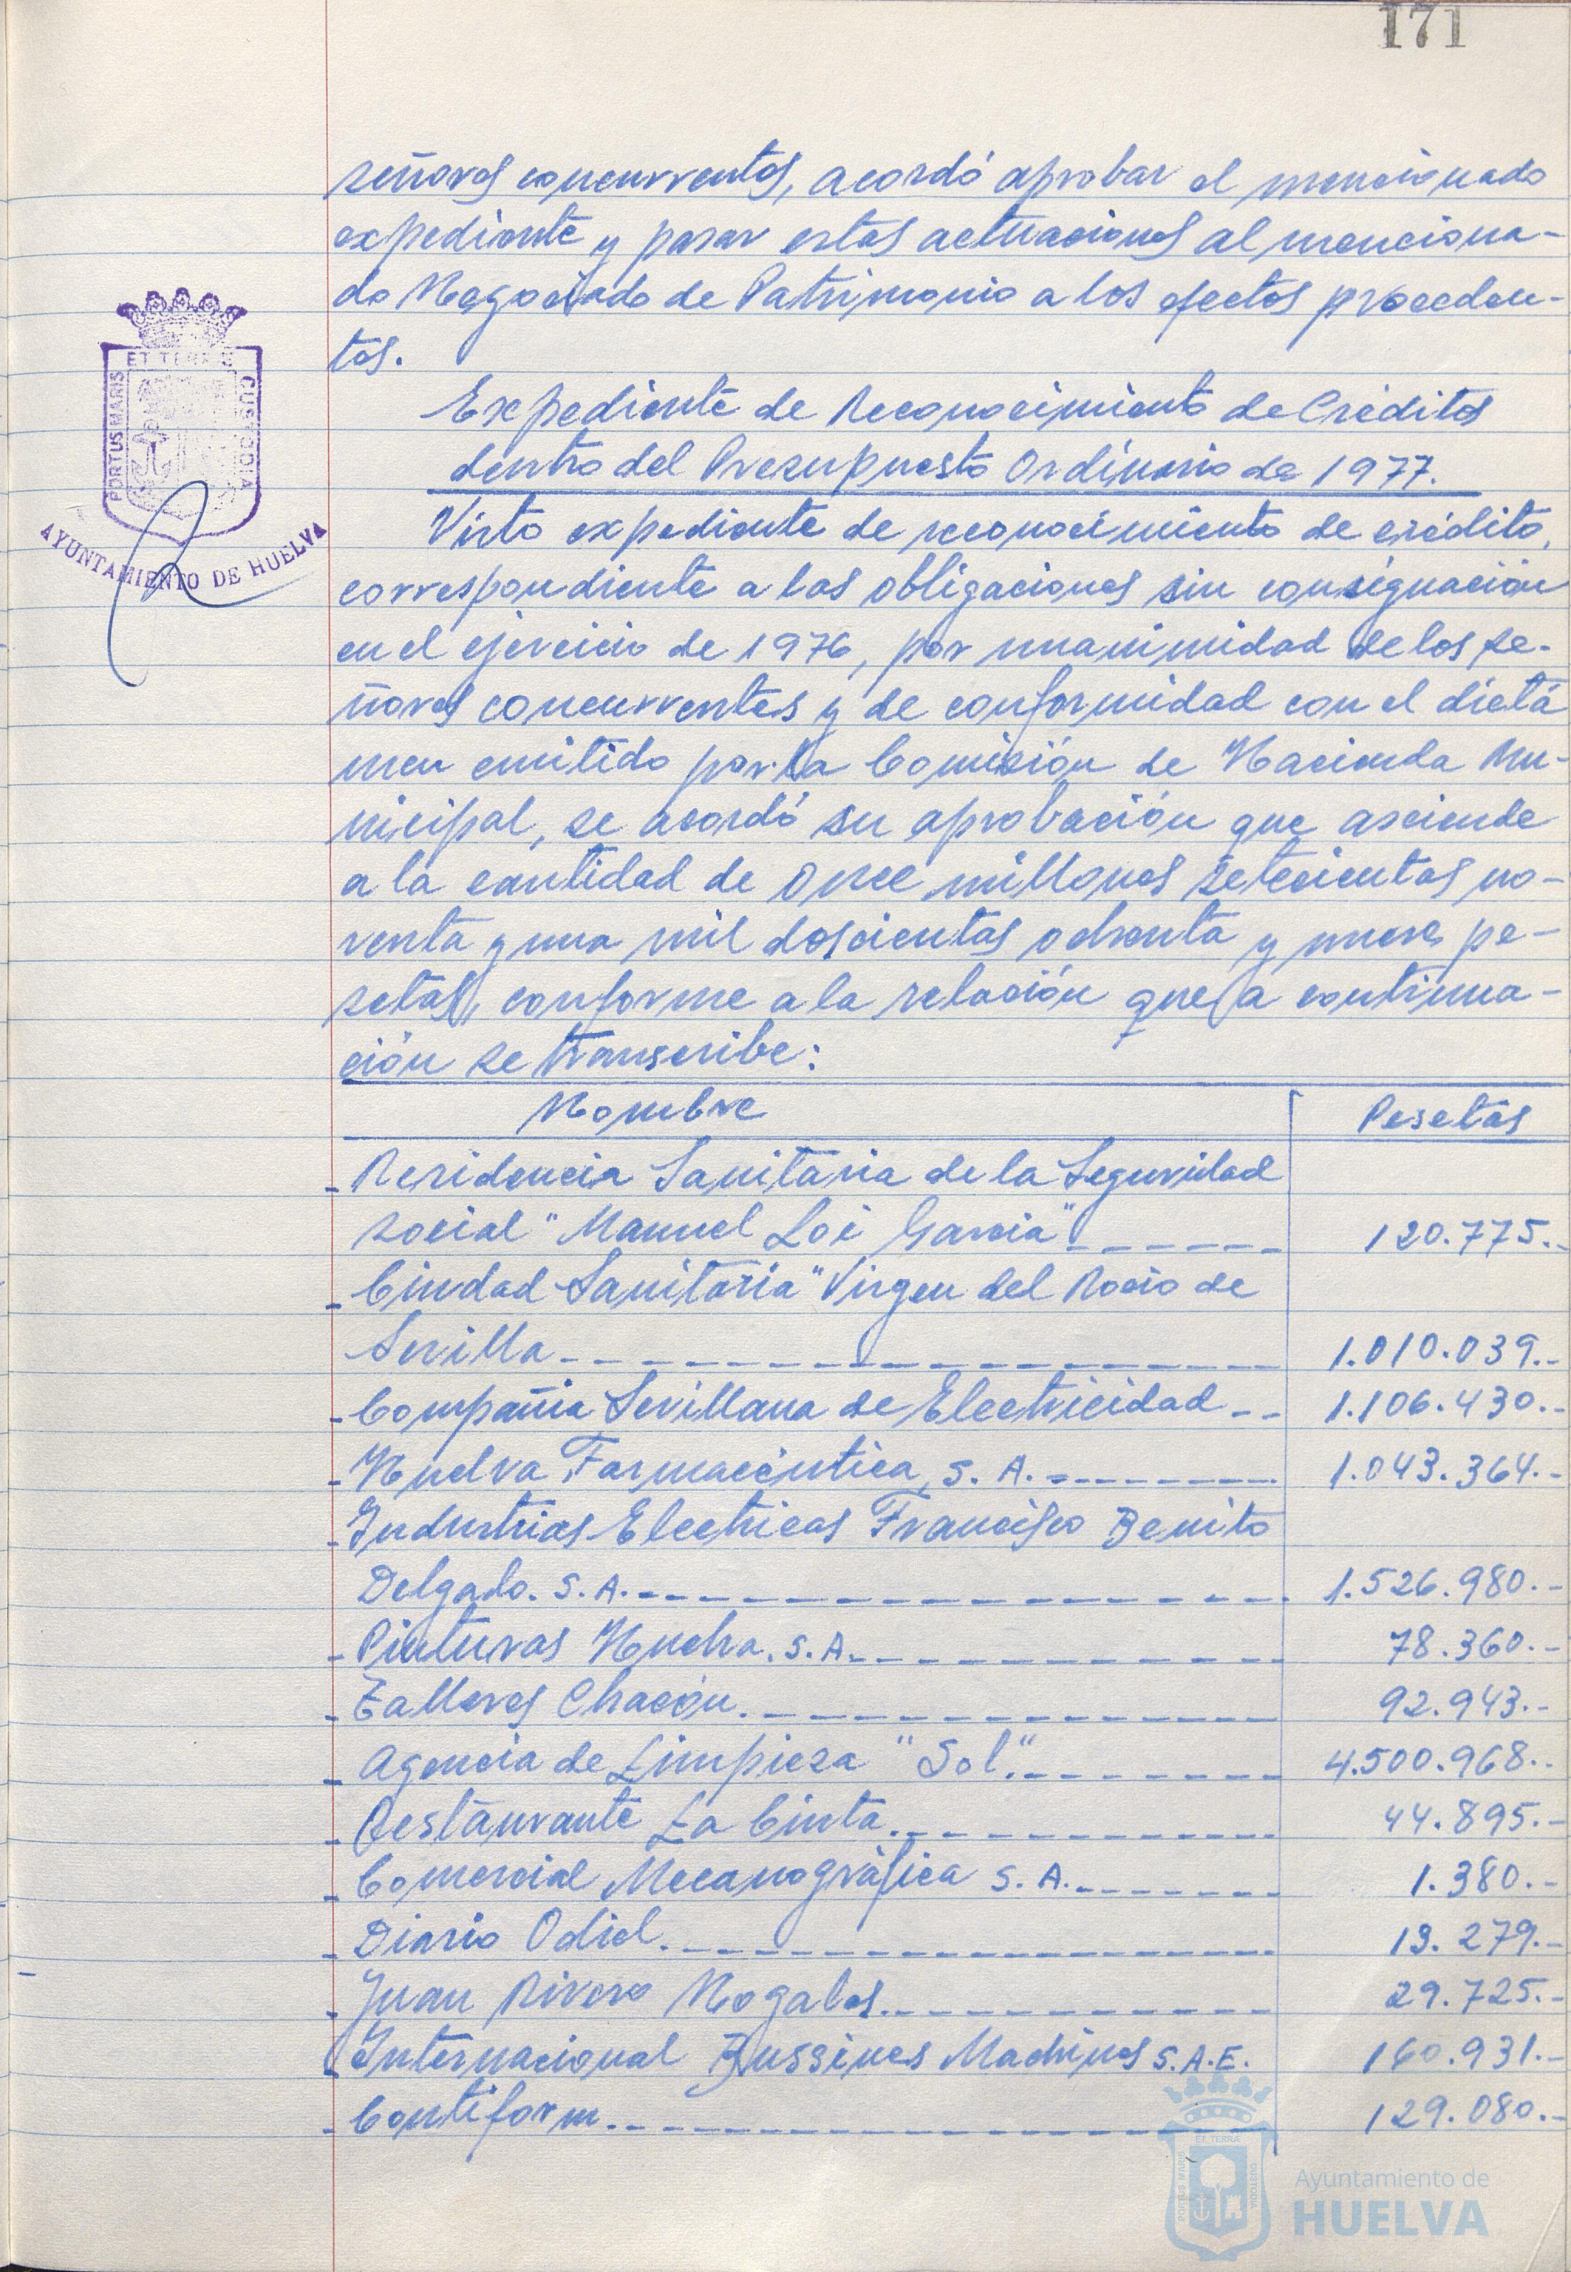 171
señores concurrentes, acordó aprobar el mencionado
expediente y pasar estas actuaciones al menciona-
do Negociado de Patrimonio a los efectos proceden-
tes.
Expediente de Reconocimiento de Créditos
dentro del Presupuesto Ordinario de 1977.
Visto expediente de reconocimiento de crédito,
correspondiente a las obligaciones sin consignación
en el ejercicio de 1976, por unanimidad de los se-
ñores concurrentes y de conformidad con el dictá
men emitido por la Comisión de Hacienda Mu-
nicipal, se acordó su aprobación que asciende
a la cantidad de Once millones setecientas no-
venta y una mil doscientas ochenta y nueve pe-
setas, conforme a la relación que a continua-
ción se transcribe:
Nombre Pesetas
- Residencia Sanitaria de la Seguridad
social "Manuel Loi García" 120.775.-
- Ciudad Sanitaria "Virgen del Rocio de
Sevilla 1.010.039.-
- Compañia Sevillana de Electricidad 1.106.430.-
- Huelva Farmacéutica, S. A. 1.043.364.-
- Industrias Electricas Francisco Benito
Delgado. S. A. 1.526.980.-
- Pinturas Huelva. S. A. 78.360.-
- Talleres Chacón. 92.943.-
- Agencia de Limpieza "Sol". 4.500.968.-
- Restaurante La Cinta. 44.895.-
- Comercial Mecanográfica S. A. 1.380.-
- Diario Odiel. 13.279.-
- Juan Rivero Nogales. 29.725.-
- Internacional Bussines Machines S.A.E. 160.931.-
- Contiform. 129.080.-
ET TERRE
PORTUS MARIS
CUSTODIA
AYUNTAMIENTO DE HUELVA
ET TERRA
PORTUS MARIS
CUSTODIA
Ayuntamiento de
HUELVA